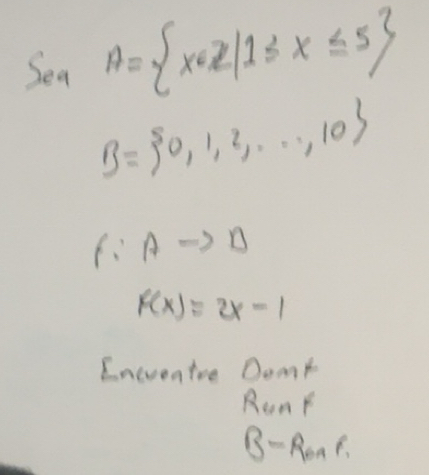 Sea A={x∈Z|1≤x≤5}
B={0,1,2,...,10}
f: A → B
f(x)=2x-1
Encuentre Dom f
Ran f
B-Ran f.